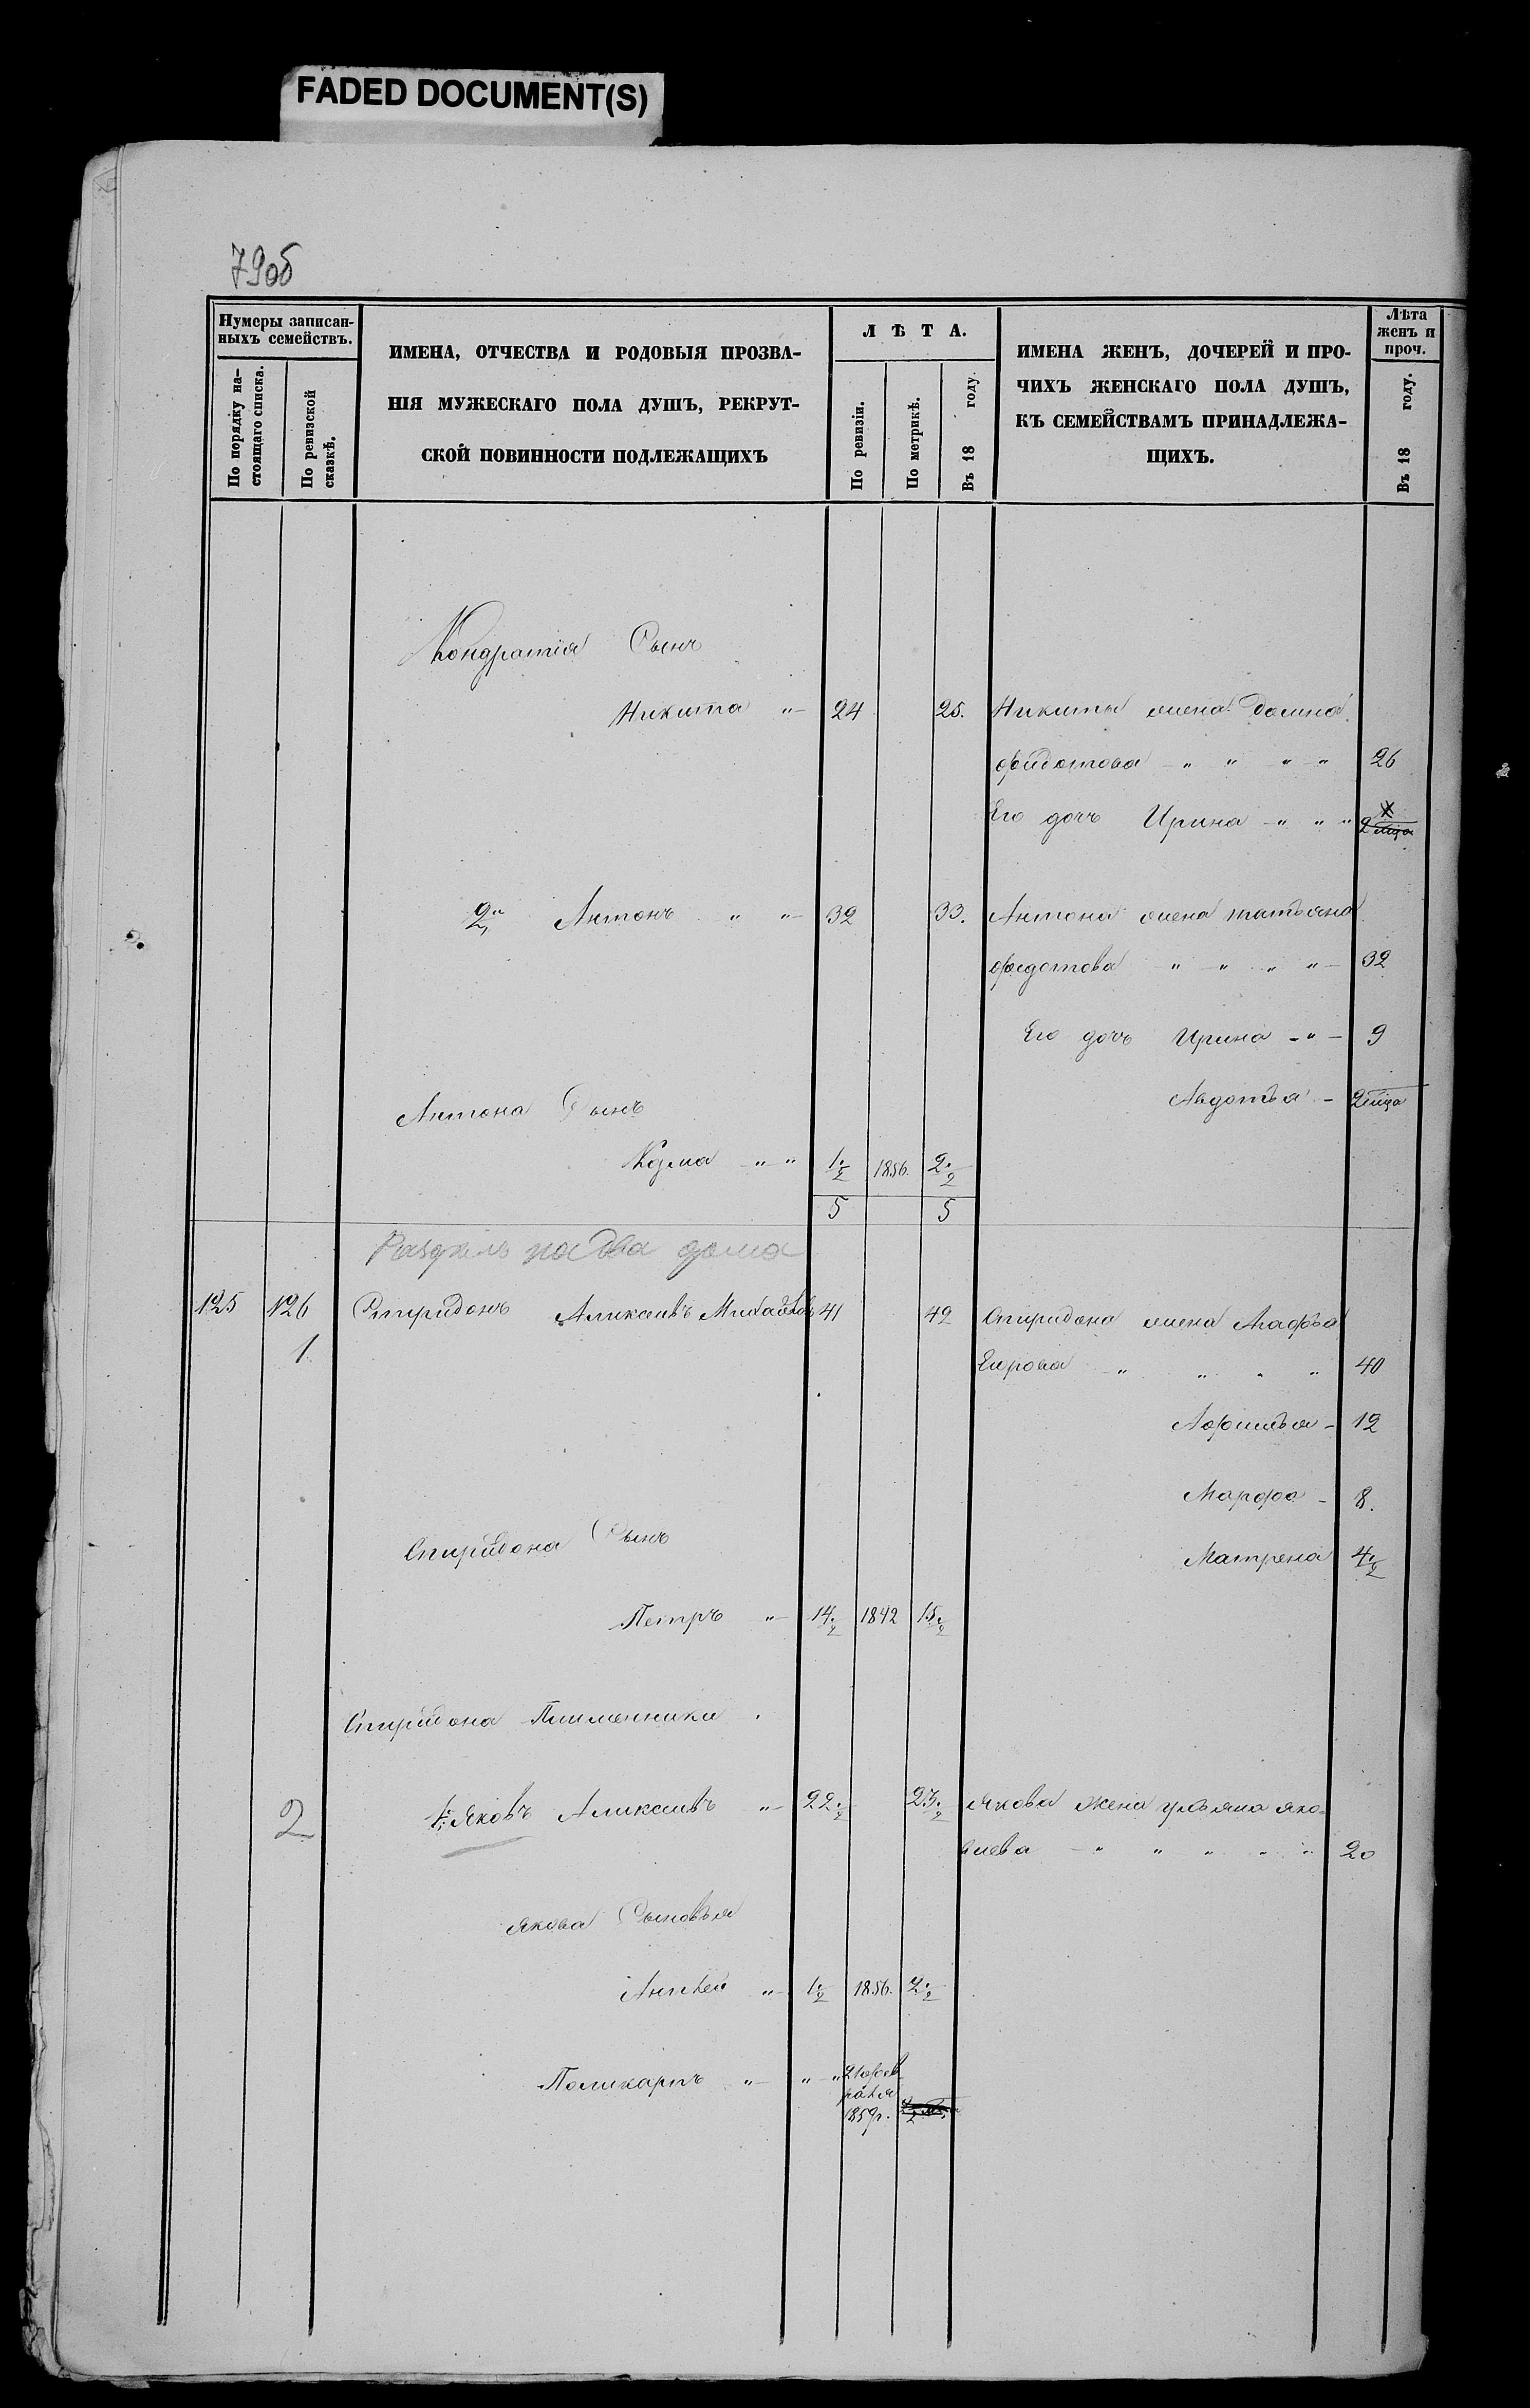 FADED DOCUMENT(S)
79об
Нумеры записан-
ныхъ семействъ.
По порядку на-
стоящаго списка.
По ревизской
сказкѣ.
ИМЕНА, ОТЧЕСТВА И РОДОВЫЯ ПРОЗВА-
НІЯ МУЖЕСКАГО ПОЛА ДУШЪ, РЕКРУТ-
СКОЙ ПОВИННОСТИ ПОДЛЕЖАЩИХЪ
ЛѢТА.
По ревизіи.
По метрикѣ.
Въ 18 году
ИМЕНА ЖЕНЪ, ДОЧЕРЕЙ И ПРО-
ЧИХЪ ЖЕНСКАГО ПОЛА ДУШЪ,
КЪ СЕМЕЙСТВАМЪ ПРИНАДЛЕЖА-
ЩИХЪ.
Лѣта
женъ и
проч.
Въ 18 году.
Кондратія Сынъ
Никита " 24 25. Никиты жена Домна
Фидотова " " " " 26
Его дочь Ирина " " "
2, Антонъ " " 32 33. Антона жена татьяна
Федотова " " " " 32
Его дочь Ирина " 9
Авдотья - 2 мца
Антона Сынъ
Козма " " 1 1/2 1856. 2 1/2
5 5
Раздѣлъ на два дома
125 126 Спиридонъ Аликсѣивъ Михайловъ 41 42 Спиридона жена Агафья
1 Егирова " " " " 40
Афимья - 12
Марфа - 8.
Спиридона Сынъ
Матрена 4 1/2
Петръ " 14 1/2 1842 15 1/2
Спиридона Плимянники
2 1, Яковъ Аликсѣивъ " 22 1/2 23 1/2 Якова Жена ульяна Яко-
влева " " " " " 20
Якова Сыновья
1 1/2 1856. 2 1/2
Поликарпъ " " " 21 Фев
раля
1859г.